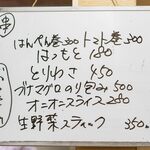 串
はんぺん巻300 トマト巻300
はつもと 180
とりわさ 450
ブナマグロのり包み 500
オニオンスライス 250
生野菜スティック 350